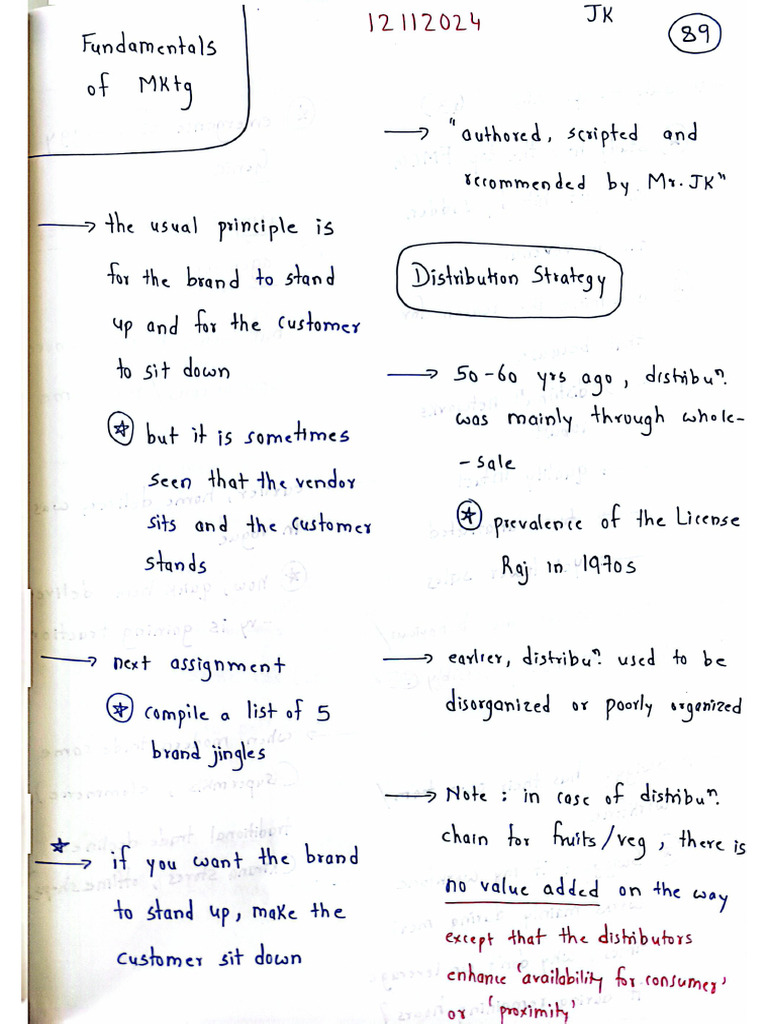 Fundamentals
of MKtg
12112024
JK
89
→ the usual principle is
for the brand to stand
up and for the customer
to sit down
☆ but it is sometimes
seen that the vendor
sits and the customer
stands
→ next assignment
☆ compile a list of 5
brand jingles
☆
→ if you want the brand
to stand up, make the
customer sit down
→ "authored, scripted and
recommended by Mr. JK"
Distribution Strategy
→ 50-60 yrs ago, distribuⁿ.
was mainly through whole-
-sale
☆ prevalence of the License
Raj in 1970s
→ earlier, distribuⁿ. used to be
disorganized or poorly organized
→ Note : in case of distribuⁿ.
chain for fruits/veg, there is
no value added on the way
except that the distributors
enhance 'availability for consumer'
or 'proximity'